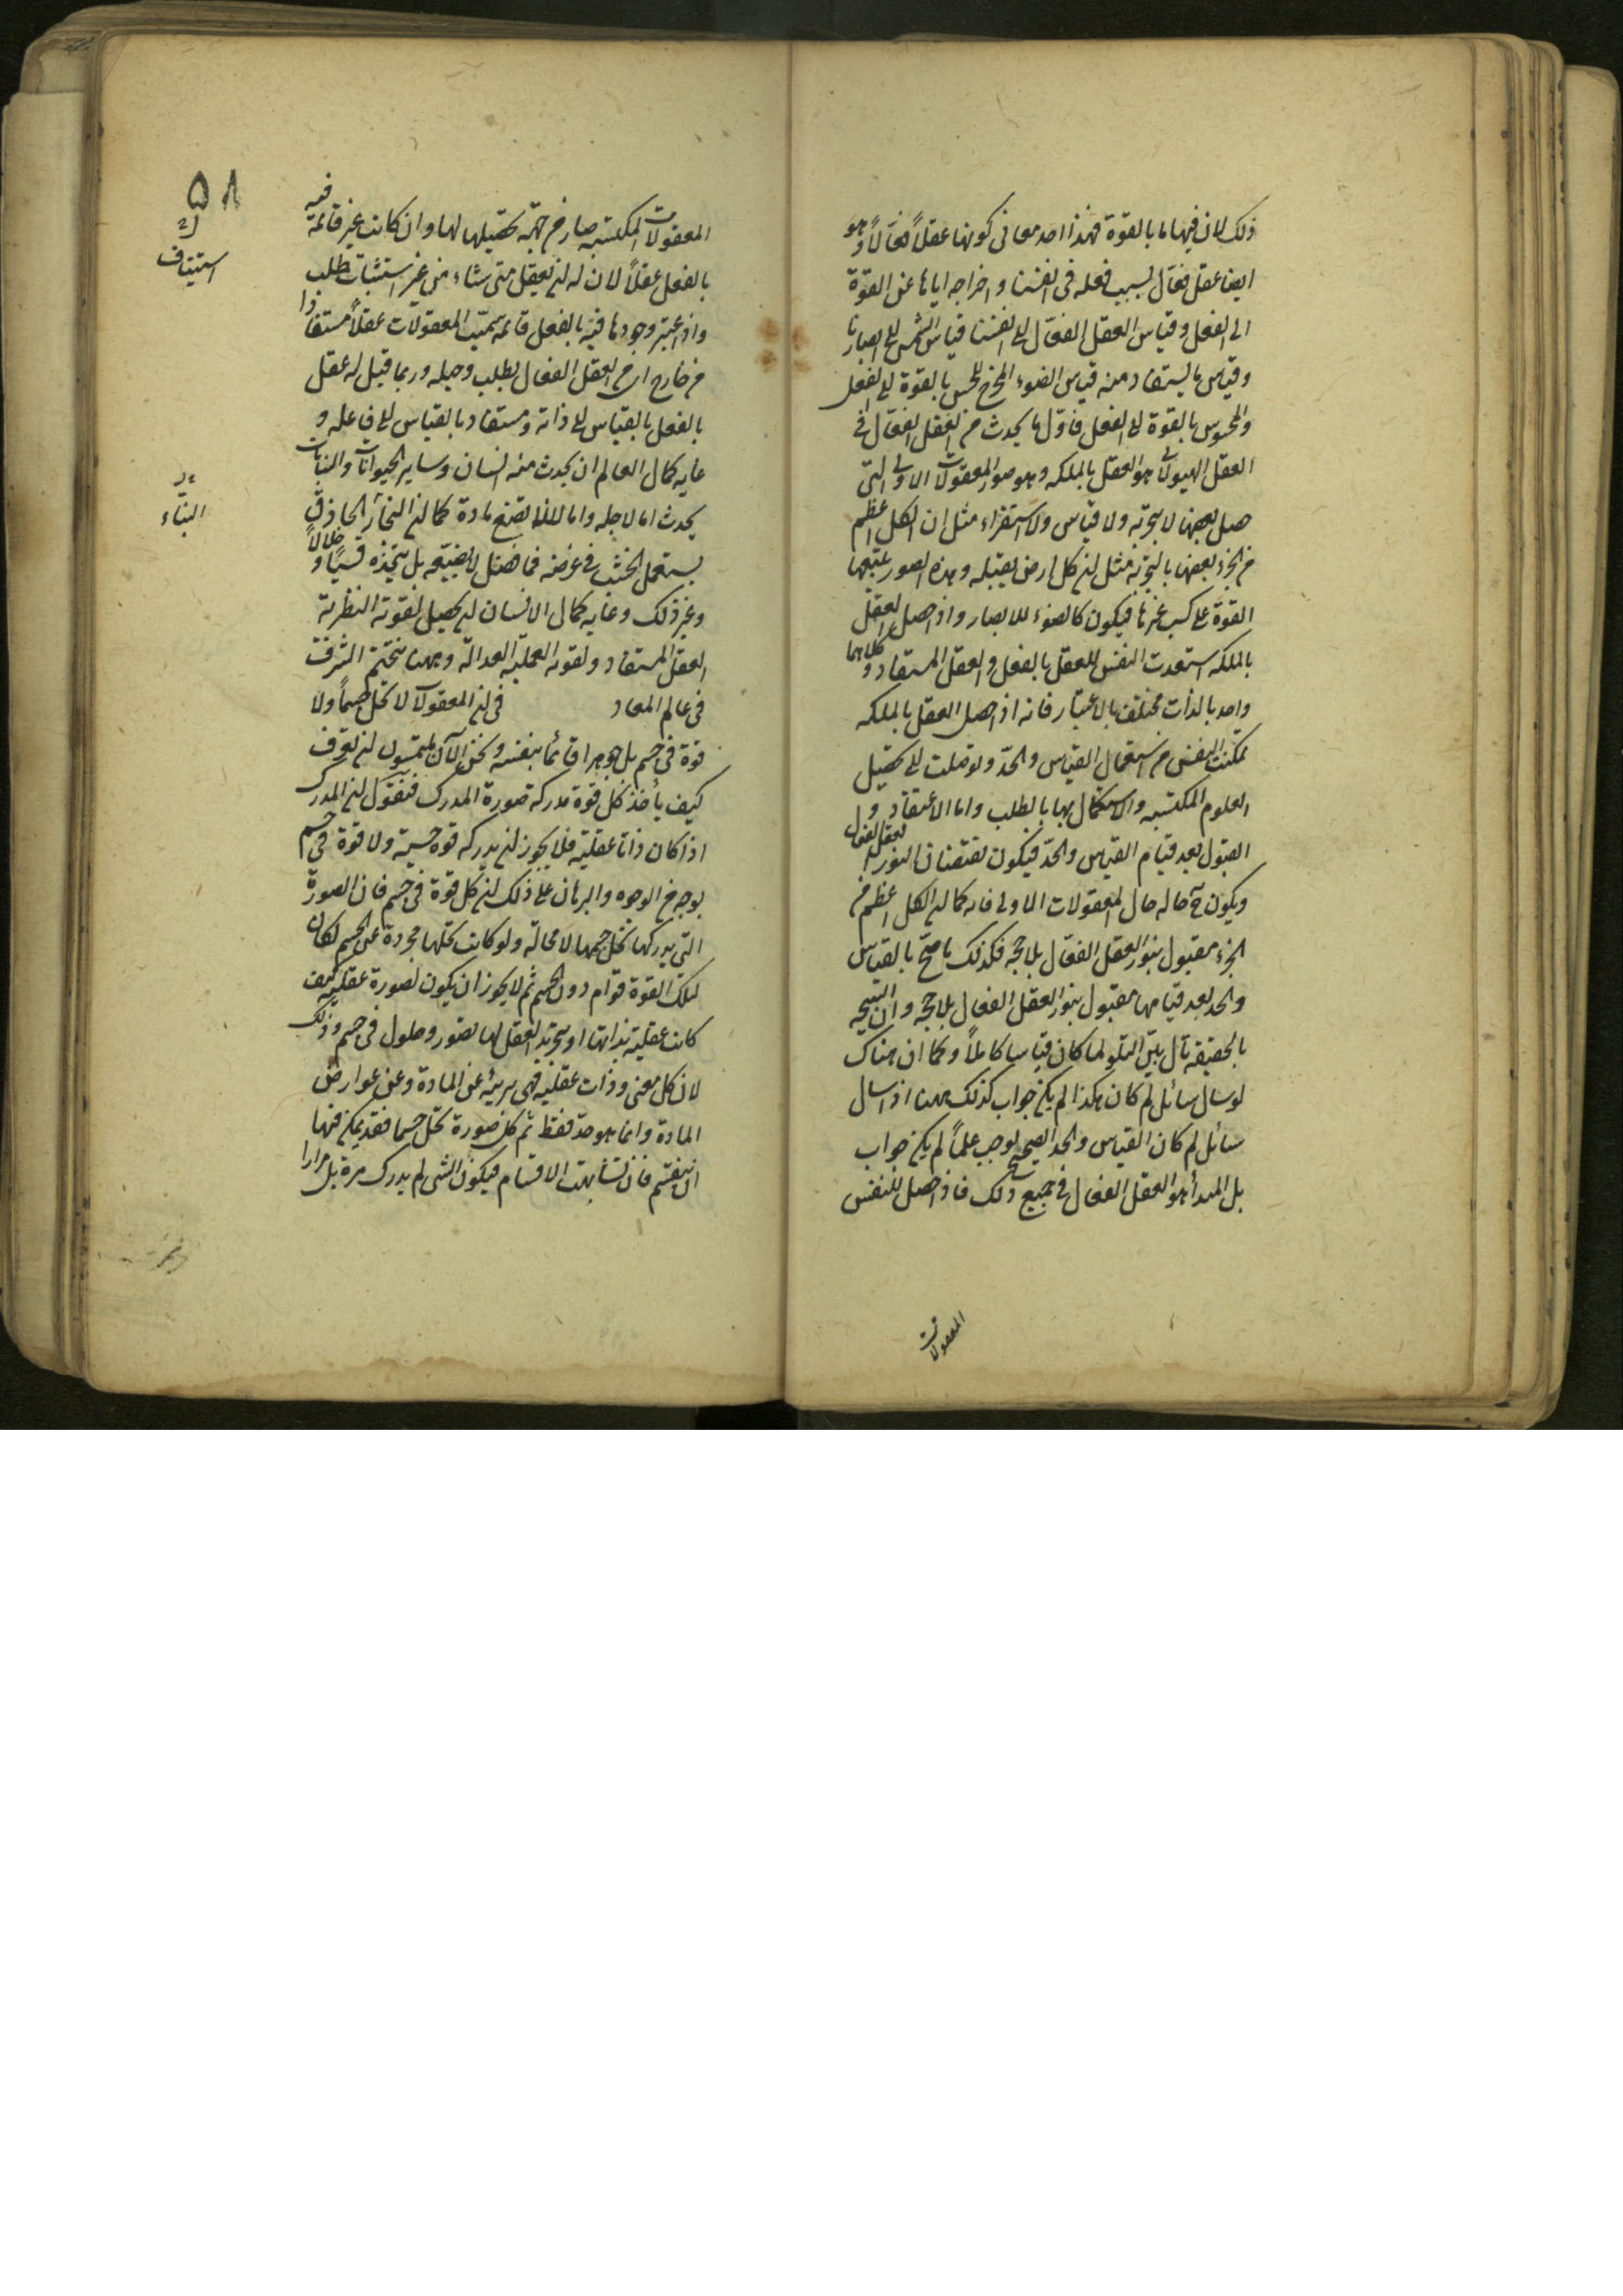 ذلك لان فيها ما بالقوة فهذا احد معانى كونها عقلاً فعّالاً وهو
ايضا عقل فعّال لسبب فعله فى انفسنا واخراجه اياها عن القوة
الى الفعل وقياس العقل الفعّال الى انفسنا قياس الشمس الى ابصارنا
وقياس ما يستفاد منه قياس الضوء المخرج للحس بالقوة الى الفعل
والمحسوس بالقوة الى الفعل فاوّل ما يحدث من العقل الفعّال فى
العقل الهيولانى هو العقل بالملكه وهو صور المعقولات الاولى التى
حصل بعضها لا بتجربة ولا قياس ولا استقراء مثل ان الكل اعظم
من الجزء وبعضها بالتجربة مثل ان كل ارض ثقيله وهذه الصور يتبعها
القوة على كسب غيرها فيكون كالضوء للابصار واذا حصل العقل
بالملكه استعدت النفس للعقل بالفعل والعقل المستفاد وكلاهما
واحد بالذات مختلف بالاعتبار فانه اذا حصل العقل بالملكه
تمكنت النفس من استعمال القياس والحدّ وتوصلت الى تحصيل
العلوم المكتسبه والاستكمال بها بالطلب واما الاعتقاد و
القبول بعد قيام القياس والحدّ فيكون بفيضان النور العقل الفعال
ويكون ح حاله حال المعقولات الاولى فانه كما ان الكل اعظم من
الجزء مقبول بنور العقل الفعّال بلا حجه فكذلك ما صحّ بالقياس
والحد بعد قيامها مقبول بنور العقل الفعال بلا حجه وان النتيجه
بالحقيقه تال بيّن التلو لما كان قياسا كاملاً وكما ان هناك
لو سال سائل لم كان هكذا لم يكن جواب كذلك ههنا اذا سال
سائل لم كان القياس والحد الصحيح يوجب علماً لم يكن جواب
بل المبدأ هو العقل الفعال فى جميع ذلك فاذا حصل للنفس
المعقولات
٥٨
المعقولات المكتسبه صار من جهة تحصيلها لها وان كانت غير قائمة فيه
بالفعل عقلاً لان له ان يعقل متى شاء من غير استثبات طلب
واذا اعتبر وجودها فيه بالفعل قائمه سميت المعقولات عقلاً مستفادا
من خارج اى من العقل الفعال بطلب وحيله وربما قيل له عقل
بالفعل بالقياس الى ذاته ومستفاد بالقياس الى فاعله و
غايه كمال العالم ان يحدث منه انسان وساير الحيوانات والنبات
يحدث اما لاجله واما لئلا تضيع مادة كما ان النجّار الحاذق
يستعمل الخشب فى غرضه فما فضل لا يضيّعه بل يتخذه قسيّاً و خلالاً
وغير ذلك وغايه كمال الانسان ان يحصل لقوته النظرية
العقل المستفاد ولقوته العمليه العدالة وههنا يختتم الشرف
فى عالم المعاد فى ان المعقولات لا تحل جسماً ولا
قوة فى جسم بل جوهرا قائما بنفسه ونحن الآن ملتمسون ان نعرف
كيف يأخذ كل قوة مدركة صورة المدرك فنقول ان المدرك
اذا كان ذاتا عقلية فلا يجوز ان يدركه قوة حسية ولا قوة فى جسم
بوجه من الوجوه والبرهان على ذلك ان كل قوة فى جسم فان الصورة
التى يدركها تحل جسمها لا محالة ولو كانت تحلها مجردة عن الجسم لكان
لتلك القوة قوام دون الجسم ثم لا يجوز ان يكون لصورة عقلية كيف
كانت عقلية بذاتها او بتجريد العقل لها تصور وحلول فى جسم وذلك
لان كل معنى وذات عقلية فهى بريئه عن المادة وعن عوارض
المادة وانما هو حد فقط ثم كل صورة تحل جسما فقد يمكن فيها
ان ينقسم فان تشابهت الاقسام فيكون الشى لم يدرك مرة بل مرارا
استيناف
البنّاء